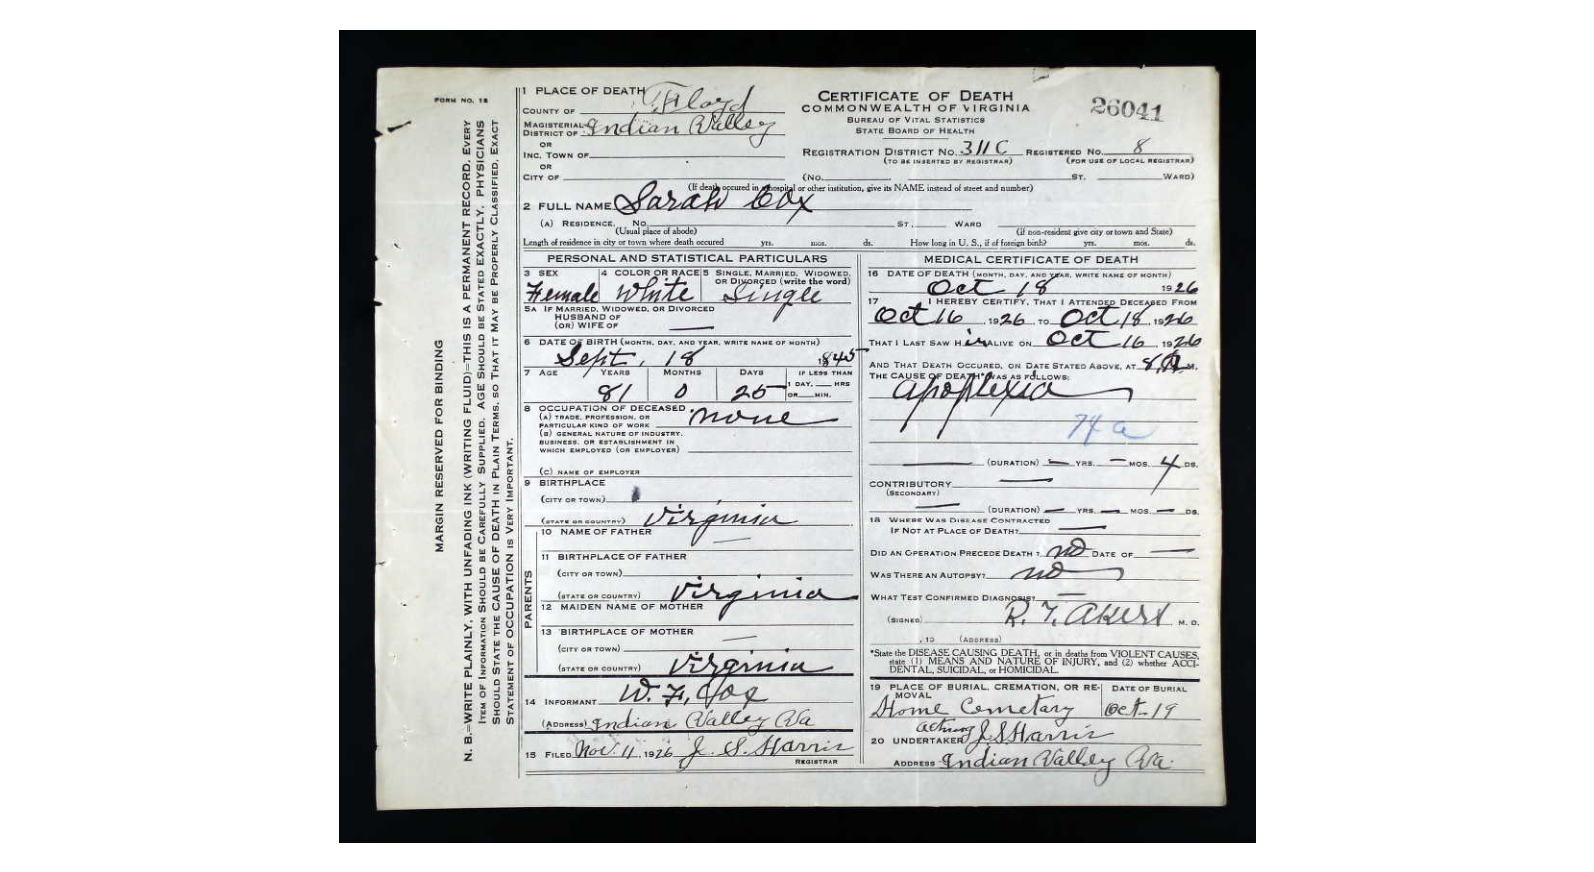 FORM NO. 18
MARGIN RESERVED FOR BINDING
N. B.—WRITE PLAINLY, WITH UNFADING INK (WRITING FLUID)—THIS IS A PERMANENT RECORD. EVERY
ITEM OF INFORMATION SHOULD BE CAREFULLY SUPPLIED. AGE SHOULD BE STATED EXACTLY. PHYSICIANS
SHOULD STATE THE CAUSE OF DEATH IN PLAIN TERMS, SO THAT IT MAY BE PROPERLY CLASSIFIED. EXACT
STATEMENT OF OCCUPATION IS VERY IMPORTANT.
1 PLACE OF DEATH
COUNTY OF Floyd
MAGISTERIAL
DISTRICT OF Indian Valley
OR
INC. TOWN OF
OR
CITY OF
CERTIFICATE OF DEATH
COMMONWEALTH OF VIRGINIA
BUREAU OF VITAL STATISTICS
STATE BOARD OF HEALTH
26041
REGISTRATION DISTRICT NO. 311C REGISTERED NO. 8
(TO BE INSERTED BY REGISTRAR) (FOR USE OF LOCAL REGISTRAR)
(No. ST. WARD)
(If death occured in a hospital or other institution, give its NAME instead of street and number)
2 FULL NAME Sarah Cox
(A) RESIDENCE. No. ST., WARD
(Usual place of abode) (If non-resident give city or town and State)
Length of residence in city or town where death occured yrs. mos. ds. How long in U. S., if of foreign birth? yrs. mos. ds.
PERSONAL AND STATISTICAL PARTICULARS
3 SEX 4 COLOR OR RACE 5 SINGLE, MARRIED, WIDOWED,
OR DIVORCED (write the word)
Female White Single
5A IF MARRIED, WIDOWED, OR DIVORCED
HUSBAND OF
(OR) WIFE OF
6 DATE OF BIRTH (MONTH, DAY, AND YEAR, WRITE NAME OF MONTH)
Sept, 18 1845
7 AGE YEARS MONTHS DAYS IF LESS THAN
1 DAY, HRS
OR MIN.
81 0 25
8 OCCUPATION OF DECEASED
(A) TRADE, PROFESSION, OR
PARTICULAR KIND OF WORK none
(B) GENERAL NATURE OF INDUSTRY,
BUSINESS, OR ESTABLISHMENT IN
WHICH EMPLOYED (OR EMPLOYER)
(C) NAME OF EMPLOYER
9 BIRTHPLACE
(CITY OR TOWN)
(STATE OR COUNTRY) Virginia
PARENTS
10 NAME OF FATHER
11 BIRTHPLACE OF FATHER
(CITY OR TOWN)
(STATE OR COUNTRY) Virginia
12 MAIDEN NAME OF MOTHER
13 BIRTHPLACE OF MOTHER
(CITY OR TOWN)
(STATE OR COUNTRY) Virginia
14 INFORMANT W. F. Cox
(ADDRESS) Indian Valley Va
15 FILED Nov. 11, 1926 J. S. Harris
REGISTRAR
MEDICAL CERTIFICATE OF DEATH
16 DATE OF DEATH (MONTH, DAY, AND YEAR, WRITE NAME OF MONTH)
Oct 18 1926
17 I HEREBY CERTIFY, THAT I ATTENDED DECEASED FROM
Oct 16, 1926 TO Oct 18, 1926
THAT I LAST SAW H ALIVE ON Oct 16 1926
AND THAT DEATH OCCURED, ON DATE STATED ABOVE, AT 8, A M.
THE CAUSE OF DEATH* WAS AS FOLLOWS:
apoplexia
74 a
(DURATION) YRS. MOS. 4 DS.
CONTRIBUTORY
(SECONDARY)
(DURATION) YRS. MOS. DS.
18 WHERE WAS DISEASE CONTRACTED
IF NOT AT PLACE OF DEATH?
DID AN OPERATION PRECEDE DEATH? no DATE OF
WAS THERE AN AUTOPSY? no
WHAT TEST CONFIRMED DIAGNOSIS?
(SIGNED) R. T. Akers M. D.
, 19 (ADDRESS)
*State the DISEASE CAUSING DEATH, or in deaths from VIOLENT CAUSES,
state (1) MEANS AND NATURE OF INJURY, and (2) whether ACCI-
DENTAL, SUICIDAL, or HOMICIDAL.
19 PLACE OF BURIAL, CREMATION, OR RE-
MOVAL
DATE OF BURIAL
Home Cemetary Oct. 19
20 UNDERTAKER acting J. S. Harris
ADDRESS Indian Valley Va.